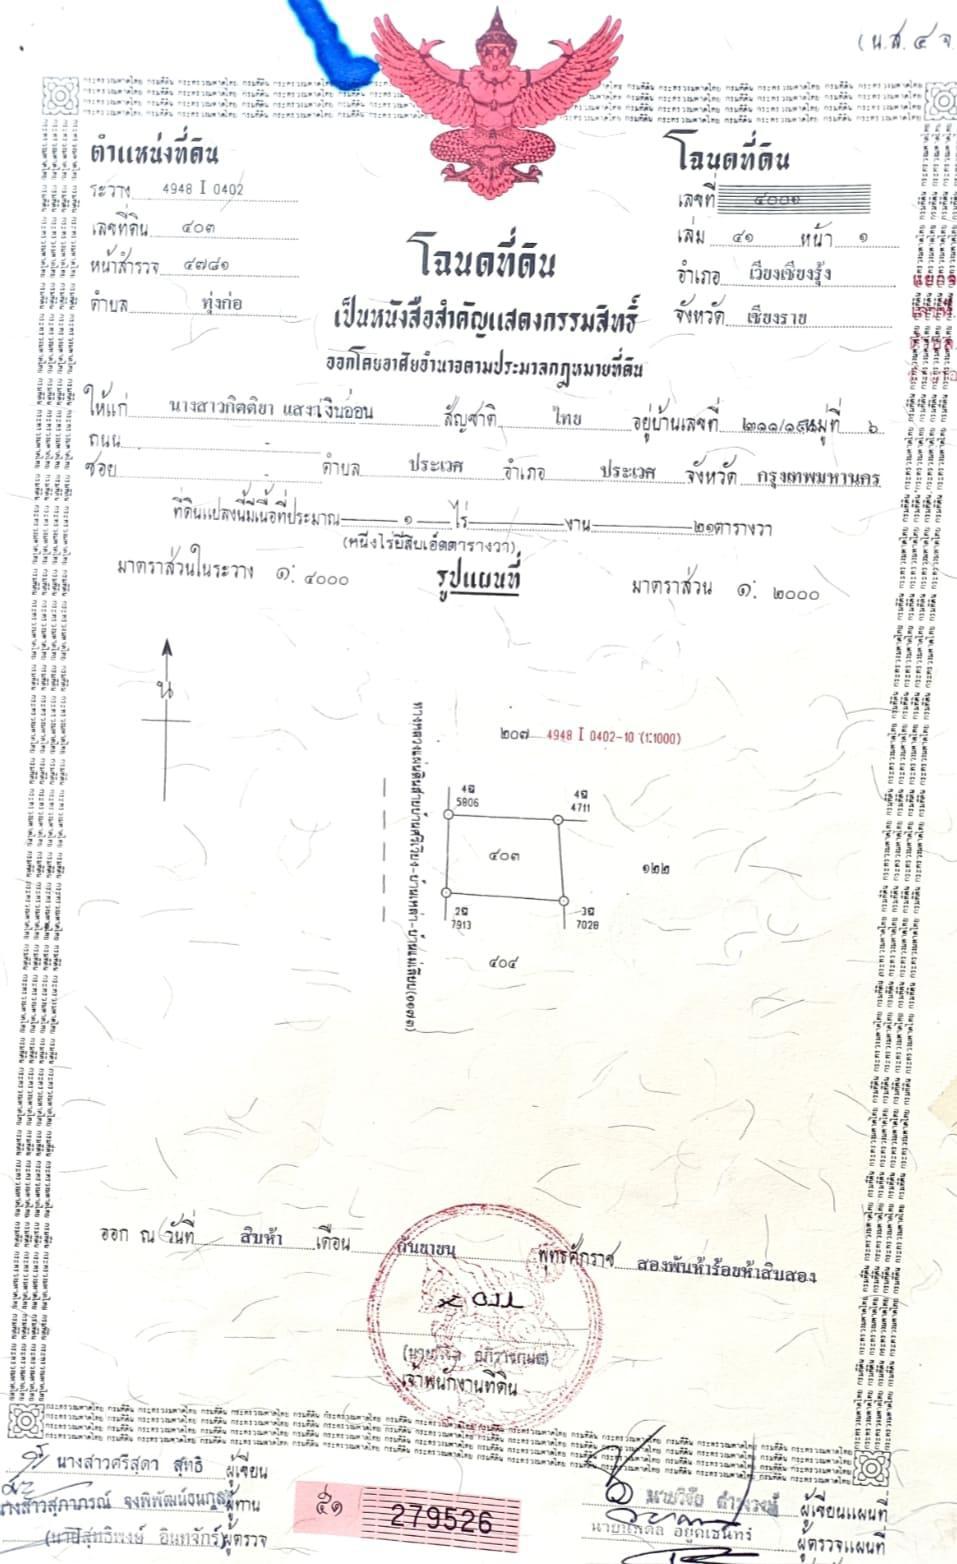 (น.ส. ๔ จ.
ตำแหน่งที่ดิน
ระวาง 4948 I 0402
เลขที่ดิน ๔๐๓
หน้าสำรวจ ๔๗๘๑
ตำบล ทุ่งก่อ
โฉนดที่ดิน
เลขที่ ๔๐๐๑
เล่ม ๔๑ หน้า ๑
อำเภอ เวียงเชียงรุ้ง
จังหวัด เชียงราย
โฉนดที่ดิน
เป็นหนังสือสำคัญแสดงกรรมสิทธิ์
ออกโดยอาศัยอำนาจตามประมวลกฎหมายที่ดิน
ให้แก่ นางสาวกิตติยา แสงเงินอ่อน สัญชาติ ไทย อยู่บ้านเลขที่ ๒๓๑๑/๑๙๘ หมู่ที่ ๖
ถนน -
ซอย - ตำบล ประเวศ อำเภอ ประเวศ จังหวัด กรุงเทพมหานคร
ที่ดินแปลงนี้มีเนื้อที่ประมาณ ๑ ไร่ งาน ๒๑ ตารางวา
(หนึ่งไร่ยี่สิบเอ็ดตารางวา)
มาตราส่วนในระวาง ๑: ๔๐๐๐ รูปแผนที่ มาตราส่วน ๑: ๒๐๐๐
น
๒๐๗ 4948 I 0402-10 (1:1000)
4ฉ 5806
4ฉ 4711
๔๐๓
๑๒๒
2ฉ 7913
3ฉ 7028
๔๐๔
ออก ณ วันที่ สิบห้า เดือน กันยายน พุทธศักราช สองพันห้าร้อยห้าสิบสอง
เจ้าพนักงานที่ดิน
นางสาวศรีสุดา สุทธิ ผู้เขียน
นางสาวสุภาภรณ์ จงพิพัฒน์ธนกุล ผู้ทาน
(นายสุทธิพงษ์ อินทจักร์) ผู้ตรวจ
๕๑ 279526
ผู้เขียนแผนที่
ผู้ตรวจแผนที่